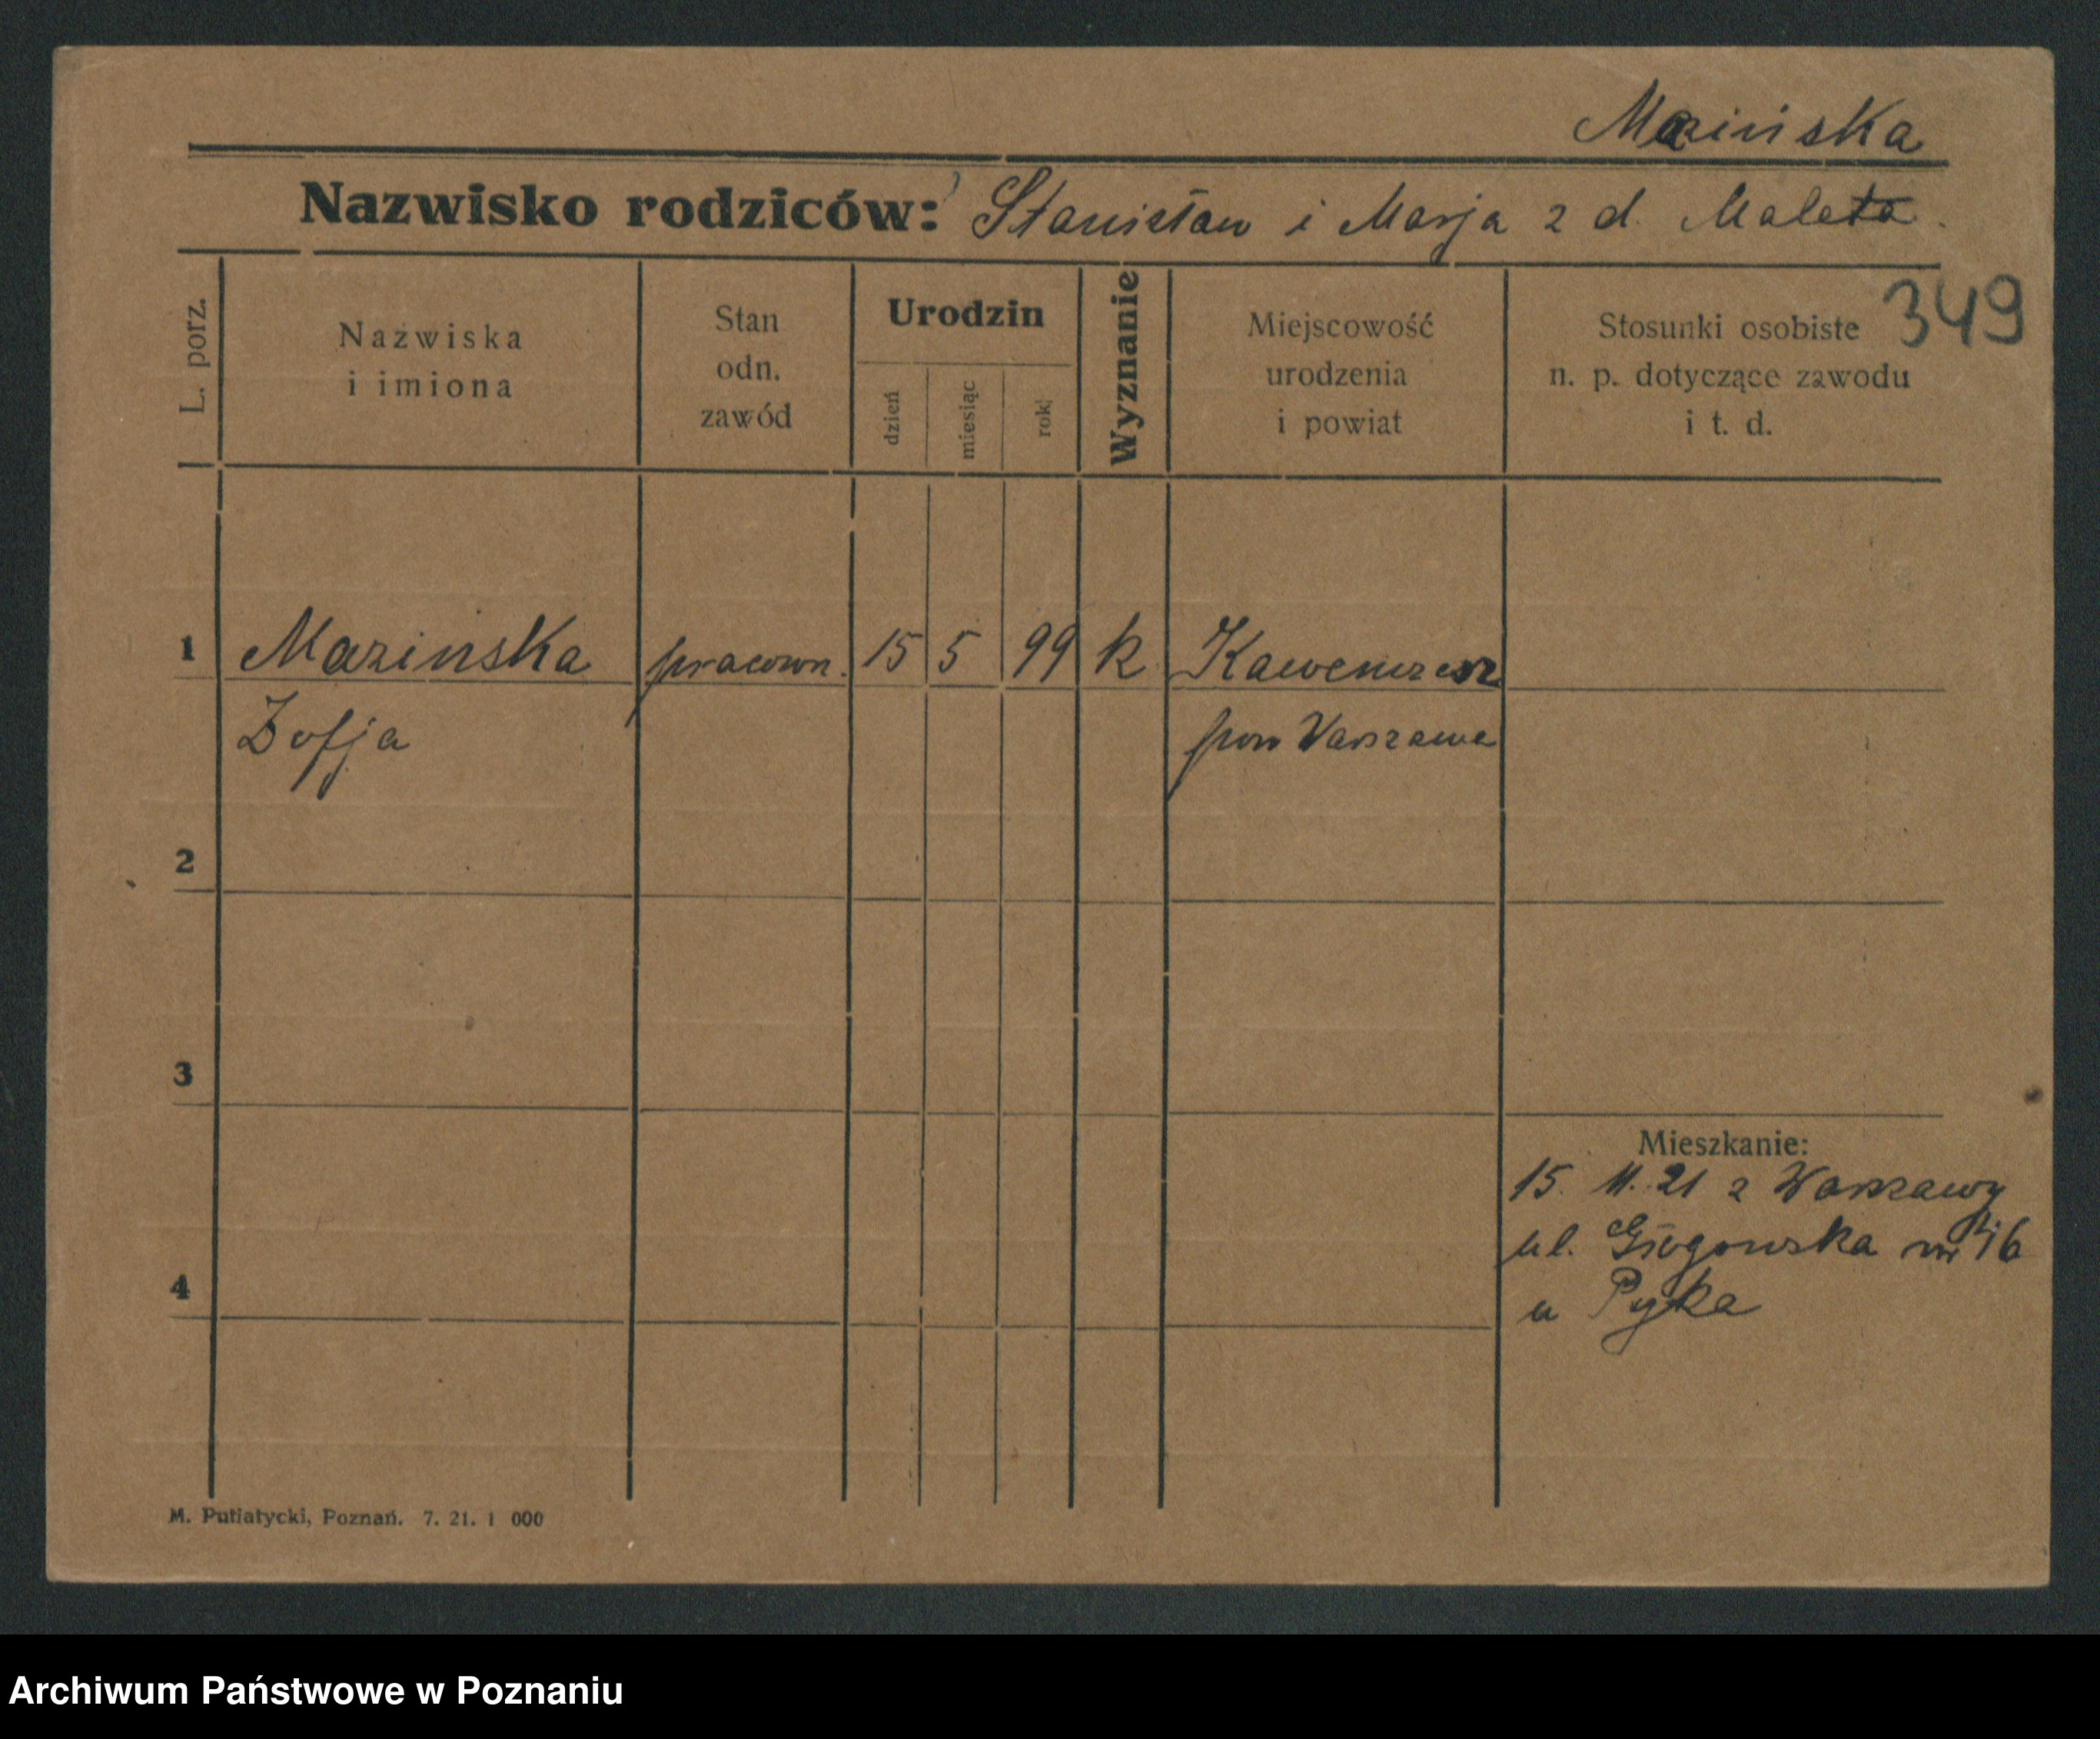 Mazinska
Nazwisko rodziców: Stanisław i Marja z d. Maleta.
349
L. porz.
Nazwiska
i imiona
Stan
odn.
zawód
Urodzin
dzień
miesiąc
rok
Wyznanie
Miejscowość
urodzenia
i powiat
Stosunki osobiste
n. p. dotyczące zawodu
i t. d.
1 Mazinska pracown. 15 5 99 k
Zofja pow Warszawa
2
3
Mieszkanie:
15. 11. 21 z Warszawy
ul. Głogowska nr
4
u Pyka
M. Putiatycki, Poznań. 7. 21. 1 000
Archiwum Państwowe w Poznaniu